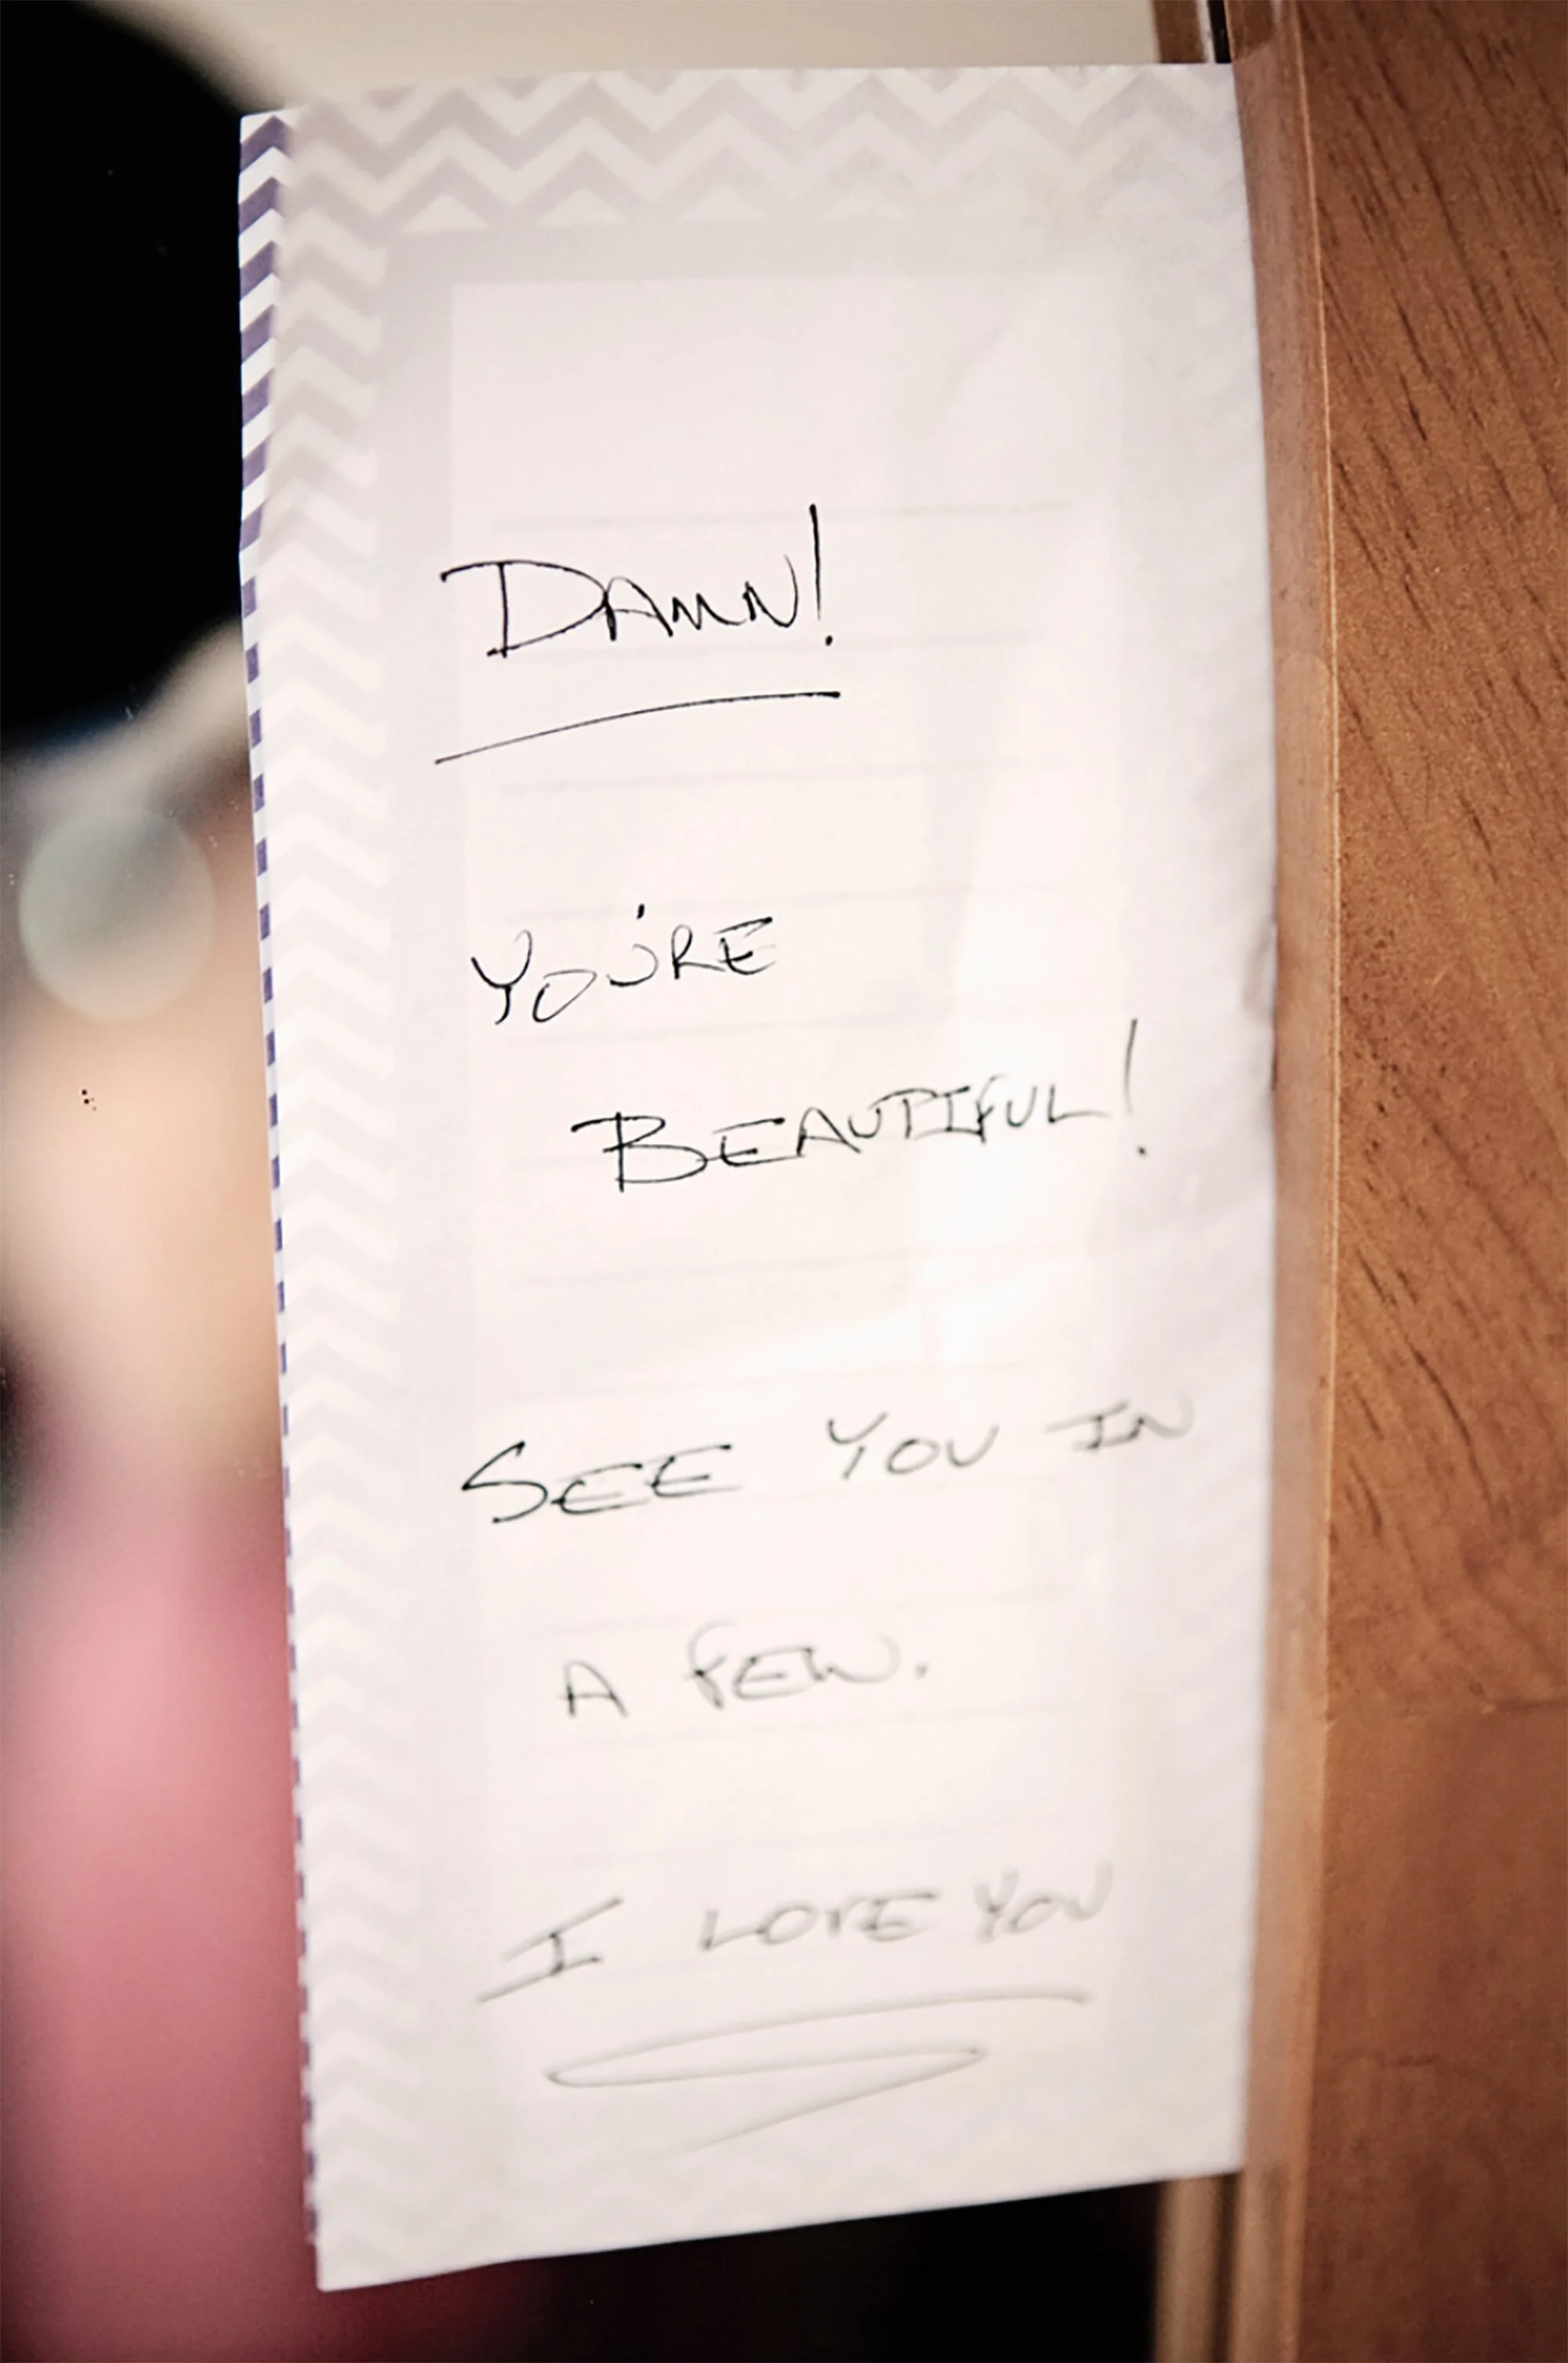 DAMN!
YOU'RE
BEAUTIFUL!
SEE YOU IN
A FEW.
I LOVE YOU